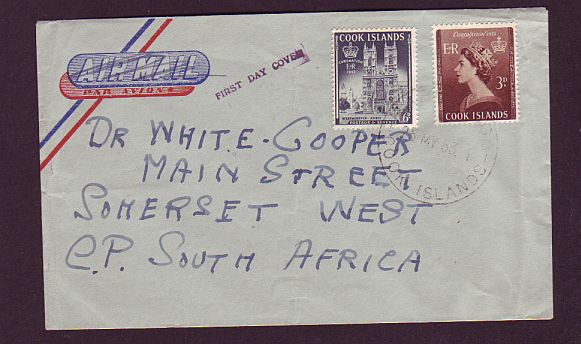 AIR MAIL
PAR AVION
FIRST DAY COVER
COOK ISLANDS
CORONATION
E R
1953
WESTMINSTER ABBEY
POSTAGE & REVENUE
6D
CORONATION 1953
E R
3D
COOK ISLANDS
MY 53
COOK ISLANDS
DR WHITE-COOPER
MAIN STREET
SOMERSET WEST
C.P. SOUTH AFRICA